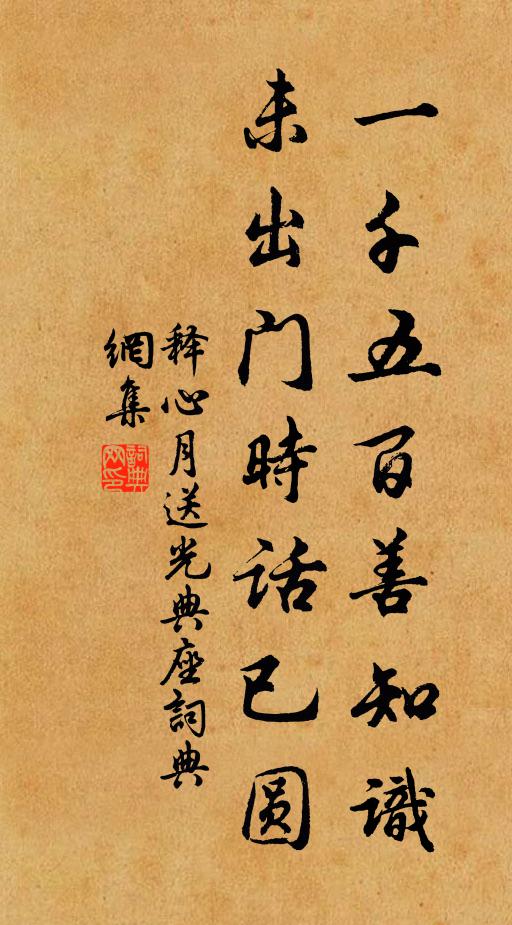 一千五百善知識
未出门時话已圆
释心月送光典座詞典
網集
詞典
网印